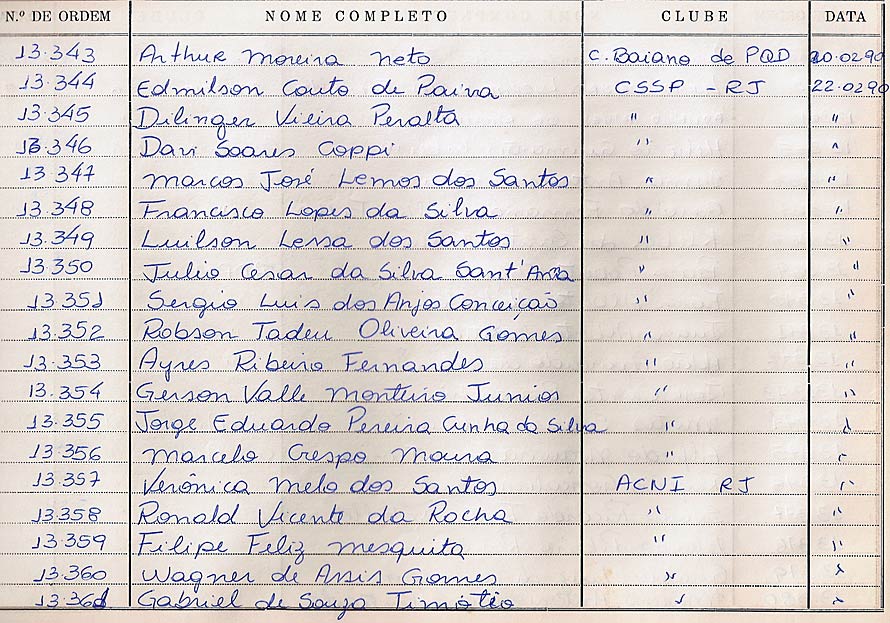 N.º DE ORDEM NOME COMPLETO CLUBE DATA
13.343 Arthur Moreira Neto C. Baiano de PQD 20.02.90
13.344 Edmilson Couto de Paiva CSSP - RJ 22.02.90
13.345 Dilinger Vieira Peralta " "
13.346 Davi Soares Coppi " "
13.347 Marcos José Lemos dos Santos " "
13.348 Francisco Lopes da Silva " "
13.349 Luilson Lessa dos Santos " "
13.350 Julio Cesar da Silva Sant'Ana " "
13.351 Sergio Luis dos Anjos Conceição " "
13.352 Robson Tadeu Oliveira Gomes " "
13.353 Ayres Ribeiro Fernandes " "
13.354 Gerson Valle Monteiro Junior " "
13.355 Jorge Eduardo Pereira Cunha da Silva " "
13.356 Marcelo Crespo Moura " "
13.357 Verônica Melo dos Santos ACNI RJ "
13.358 Ronald Vicente da Rocha " "
13.359 Filipe Feliz Mesquita " "
13.360 Wagner de Assis Gomes " "
13.361 Gabriel de Souza Timótio " "